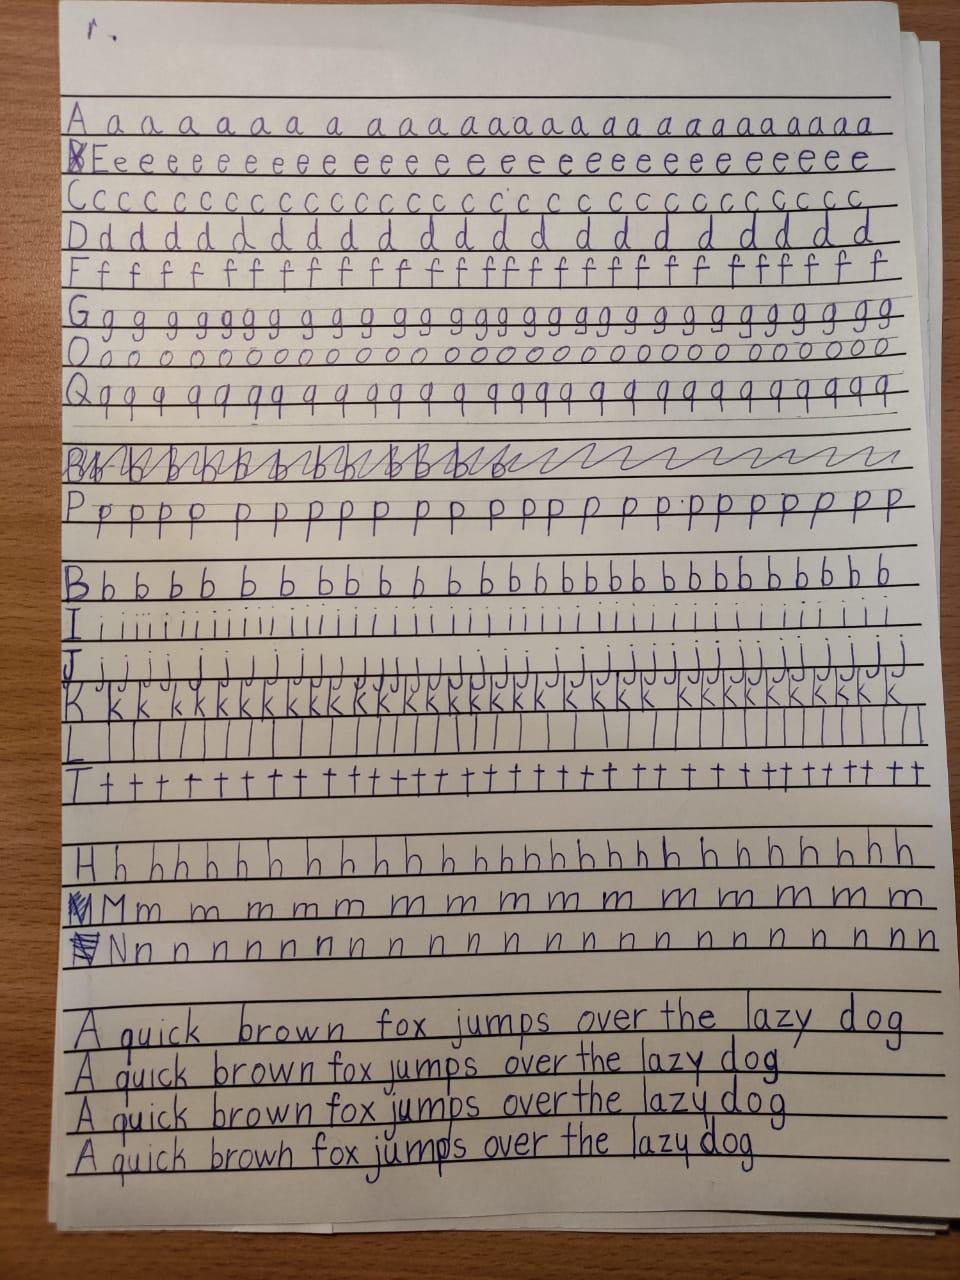 r.
A a a a a a a a a a a a a a a a a a a a a a a a a a
E e e e e e e e e e e e e e e e e e e e e e e e e e e
C c c c c c c c c c c c c c c c c c c c c c c c c c c c
D d d d d d d d d d d d d d d d d d d d d d
F f f f f f f f f f f f f f f f f f f f f f f f f f f f
G g g g g g g g g g g g g g g g g g g g g g g g g g g g g
O o o o o o o o o o o o o o o o o o o o o o o o o o o o o
Q q q q q q q q q q q q q q q q q q q q q q q q q q q
P p p p p p p p p p p p p p p p p p p p p p p p p p
B b b b b b b b b b b b b b b b b b b b b b b b b b
I i i i i i i i i i i i i i i i i i i i i i i i i i i i i i i i i i i
J j j j j j j j j j j j j j j j j j j j j j j j j j j j j j j j j j j
K k k k k k k k k k k k k k k k k k k k k k k k k k k k k k k
L l l l l l l l l l l l l l l l l l l l l l l l l l l l l l l l l
T t t t t t t t t t t t t t t t t t t t t t t t t t t t t t t t
H h h h h h h h h h h h h h h h h h h h h h h h h
M m m m m m m m m m m m m m m
N n n n n n n n n n n n n n n n n n n n n n n
A quick brown fox jumps over the lazy dog
A quick brown fox jumps over the lazy dog
A quick brown fox jumps over the lazy dog
A quick brown fox jumps over the lazy dog